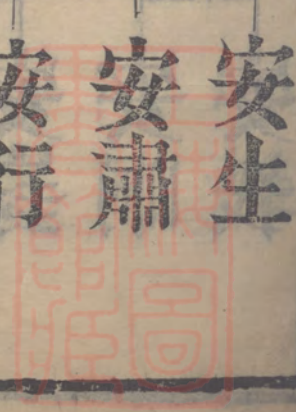 安生
安肅
安行